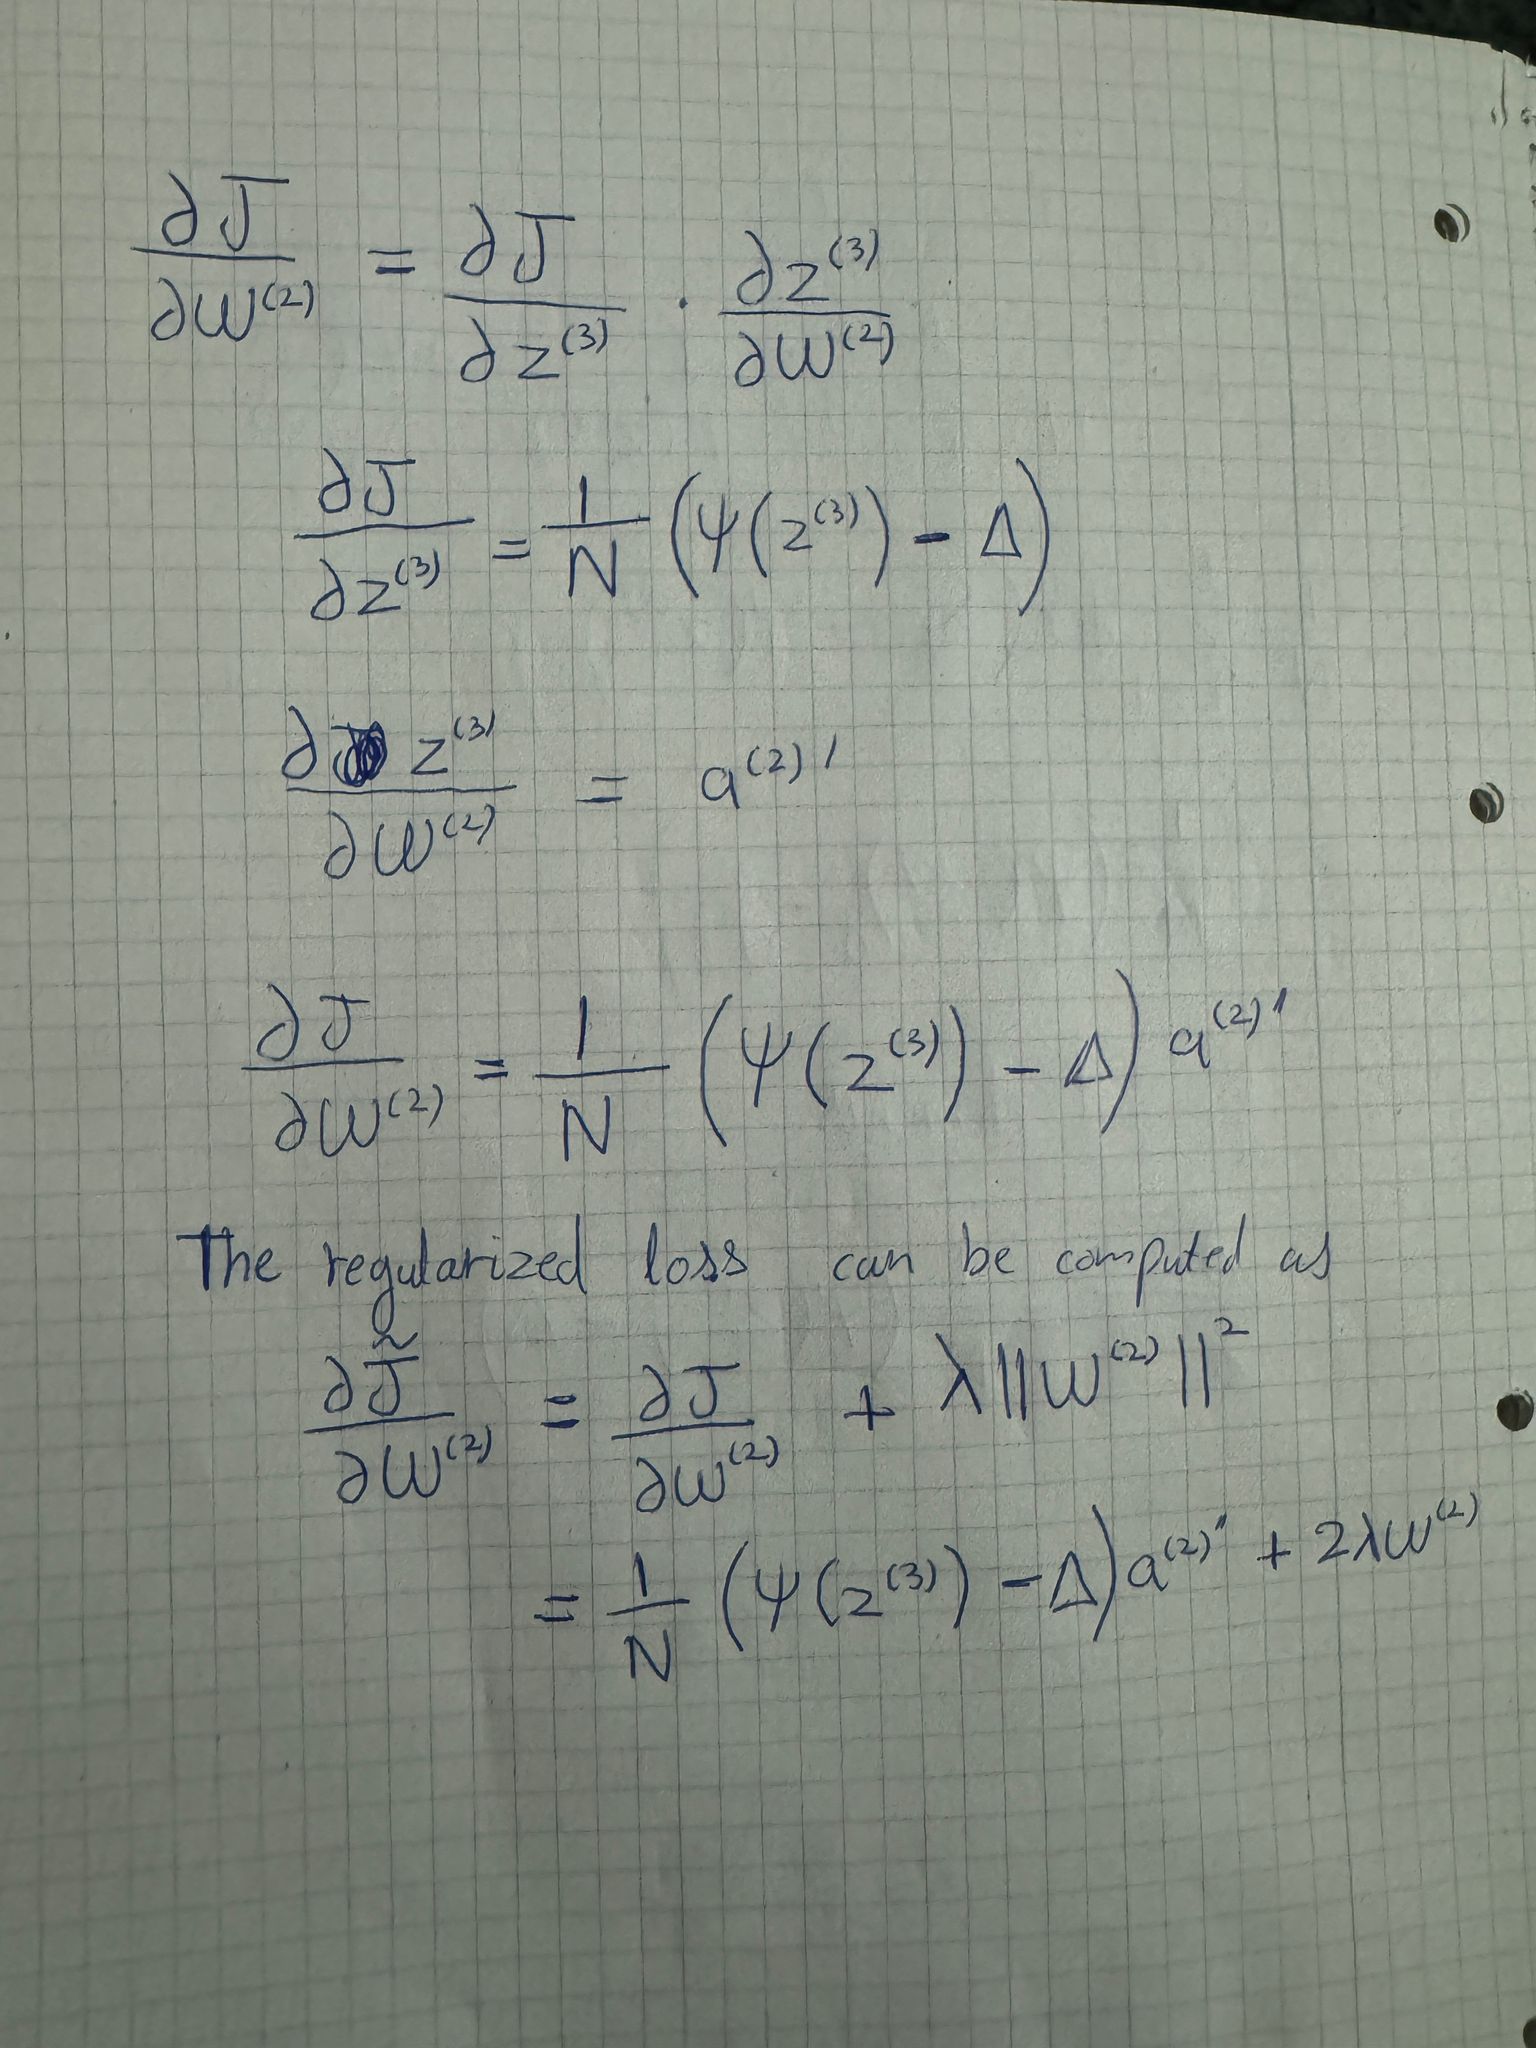 ∂J/∂W⁽²⁾ = ∂J/∂z⁽³⁾ · ∂z⁽³⁾/∂W⁽²⁾
∂J/∂z⁽³⁾ = 1/N (ψ(z⁽³⁾) - Δ)
∂z⁽³⁾/∂W⁽²⁾ = a⁽²⁾'
∂J/∂W⁽²⁾ = 1/N (ψ(z⁽³⁾) - Δ) a⁽²⁾'
The regularized loss can be computed as
∂J̃/∂W⁽²⁾ = ∂J/∂W⁽²⁾ + λ||W⁽²⁾||²
= 1/N (ψ(z⁽³⁾) - Δ) a⁽²⁾' + 2λW⁽²⁾